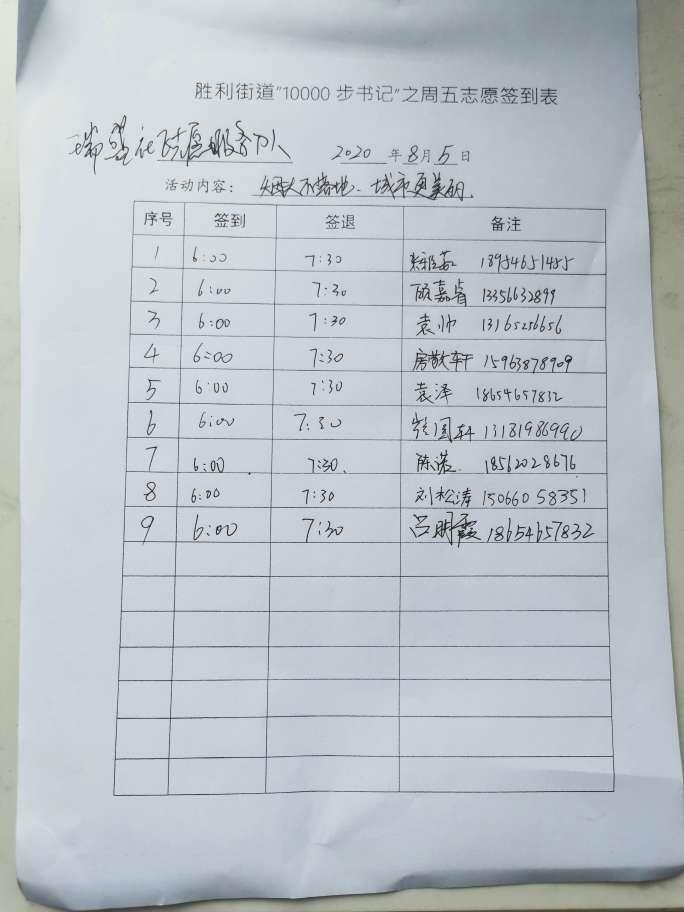 胜利街道"10000步书记"之周五志愿签到表
瑞 社 志愿服务队 2020年8月5日
活动内容：烟头不落地、城市更美丽
序号 签到 签退 备注
1 6:00 7:30 18954651455
2 6:00 7:30 顾嘉省 13356632899
3 6:00 7:30 袁帅 13165256656
4 6:00 7:30 房敬轩 15963878909
5 6:00 7:30 袁泽 18654657832
6 6:00 7:30 13181986990
7 6:00 7:30 陈诺 18562028676
8 6:00 7:30 刘松涛 15066058351
9 6:00 7:30 吕明霞 18654657832